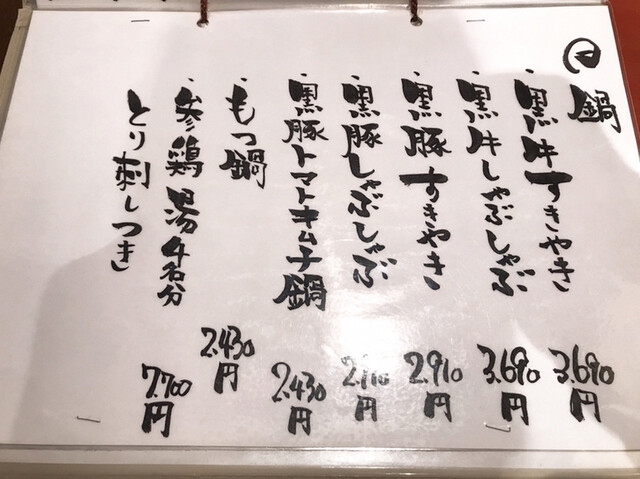 鍋
・黒牛すきやき 3.690円
・黒牛しゃぶしゃぶ 3.690円
・黒豚すきやき 2.910円
・黒豚しゃぶしゃぶ 円
・黒豚トマトキムチ鍋 2.430円
・もつ鍋 2.430円
・参鶏湯4名分 7.700円
とり刺しつき